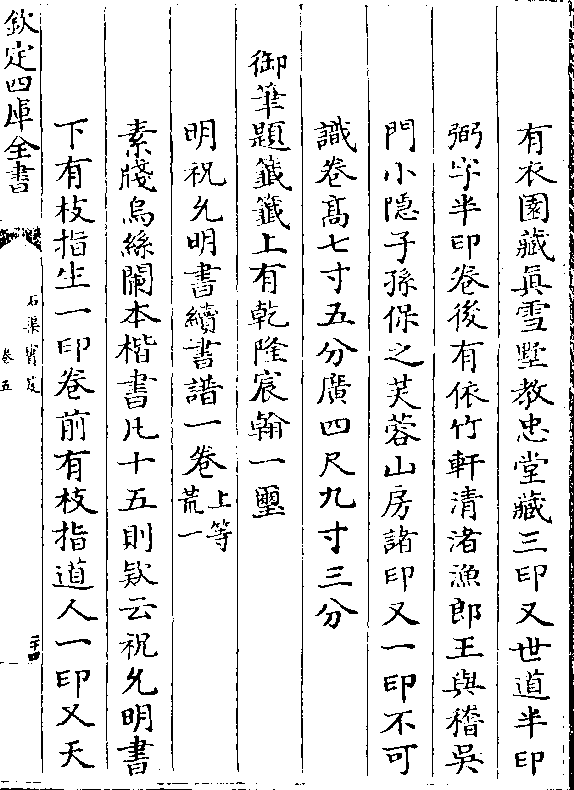 有衣園藏眞雪墅教忠堂藏三印又世道半印
弼字半印卷後有依竹軒清渚漁郎王與稽吳
門小隠子孫保之芙蓉山房諸印又一印不可
識卷髙七寸五分廣四尺九寸三分
御筆題籤籤上有乾隆宸翰一璽
明祝允明書續書譜一卷上等
荒一
素牋烏絲闌本楷書凡十五則欵云祝允明書
下有枝指生一印卷前有枝指道人一印又天
欽定四庫全書
石渠寳笈
卷五
二十四